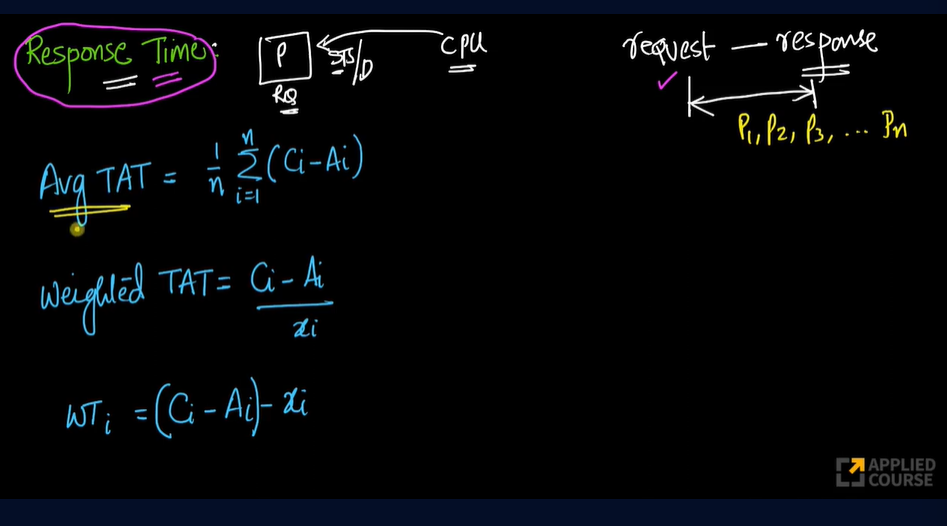 Response Time: P STS/D CPU request — response
RQ
P1, P2, P3, ... Pn
Avg TAT = 1/n n∑i=1 (Ci - Ai)
Weighted TAT = Ci - Ai / xi
WTi = (Ci - Ai) - xi
APPLIED
COURSE